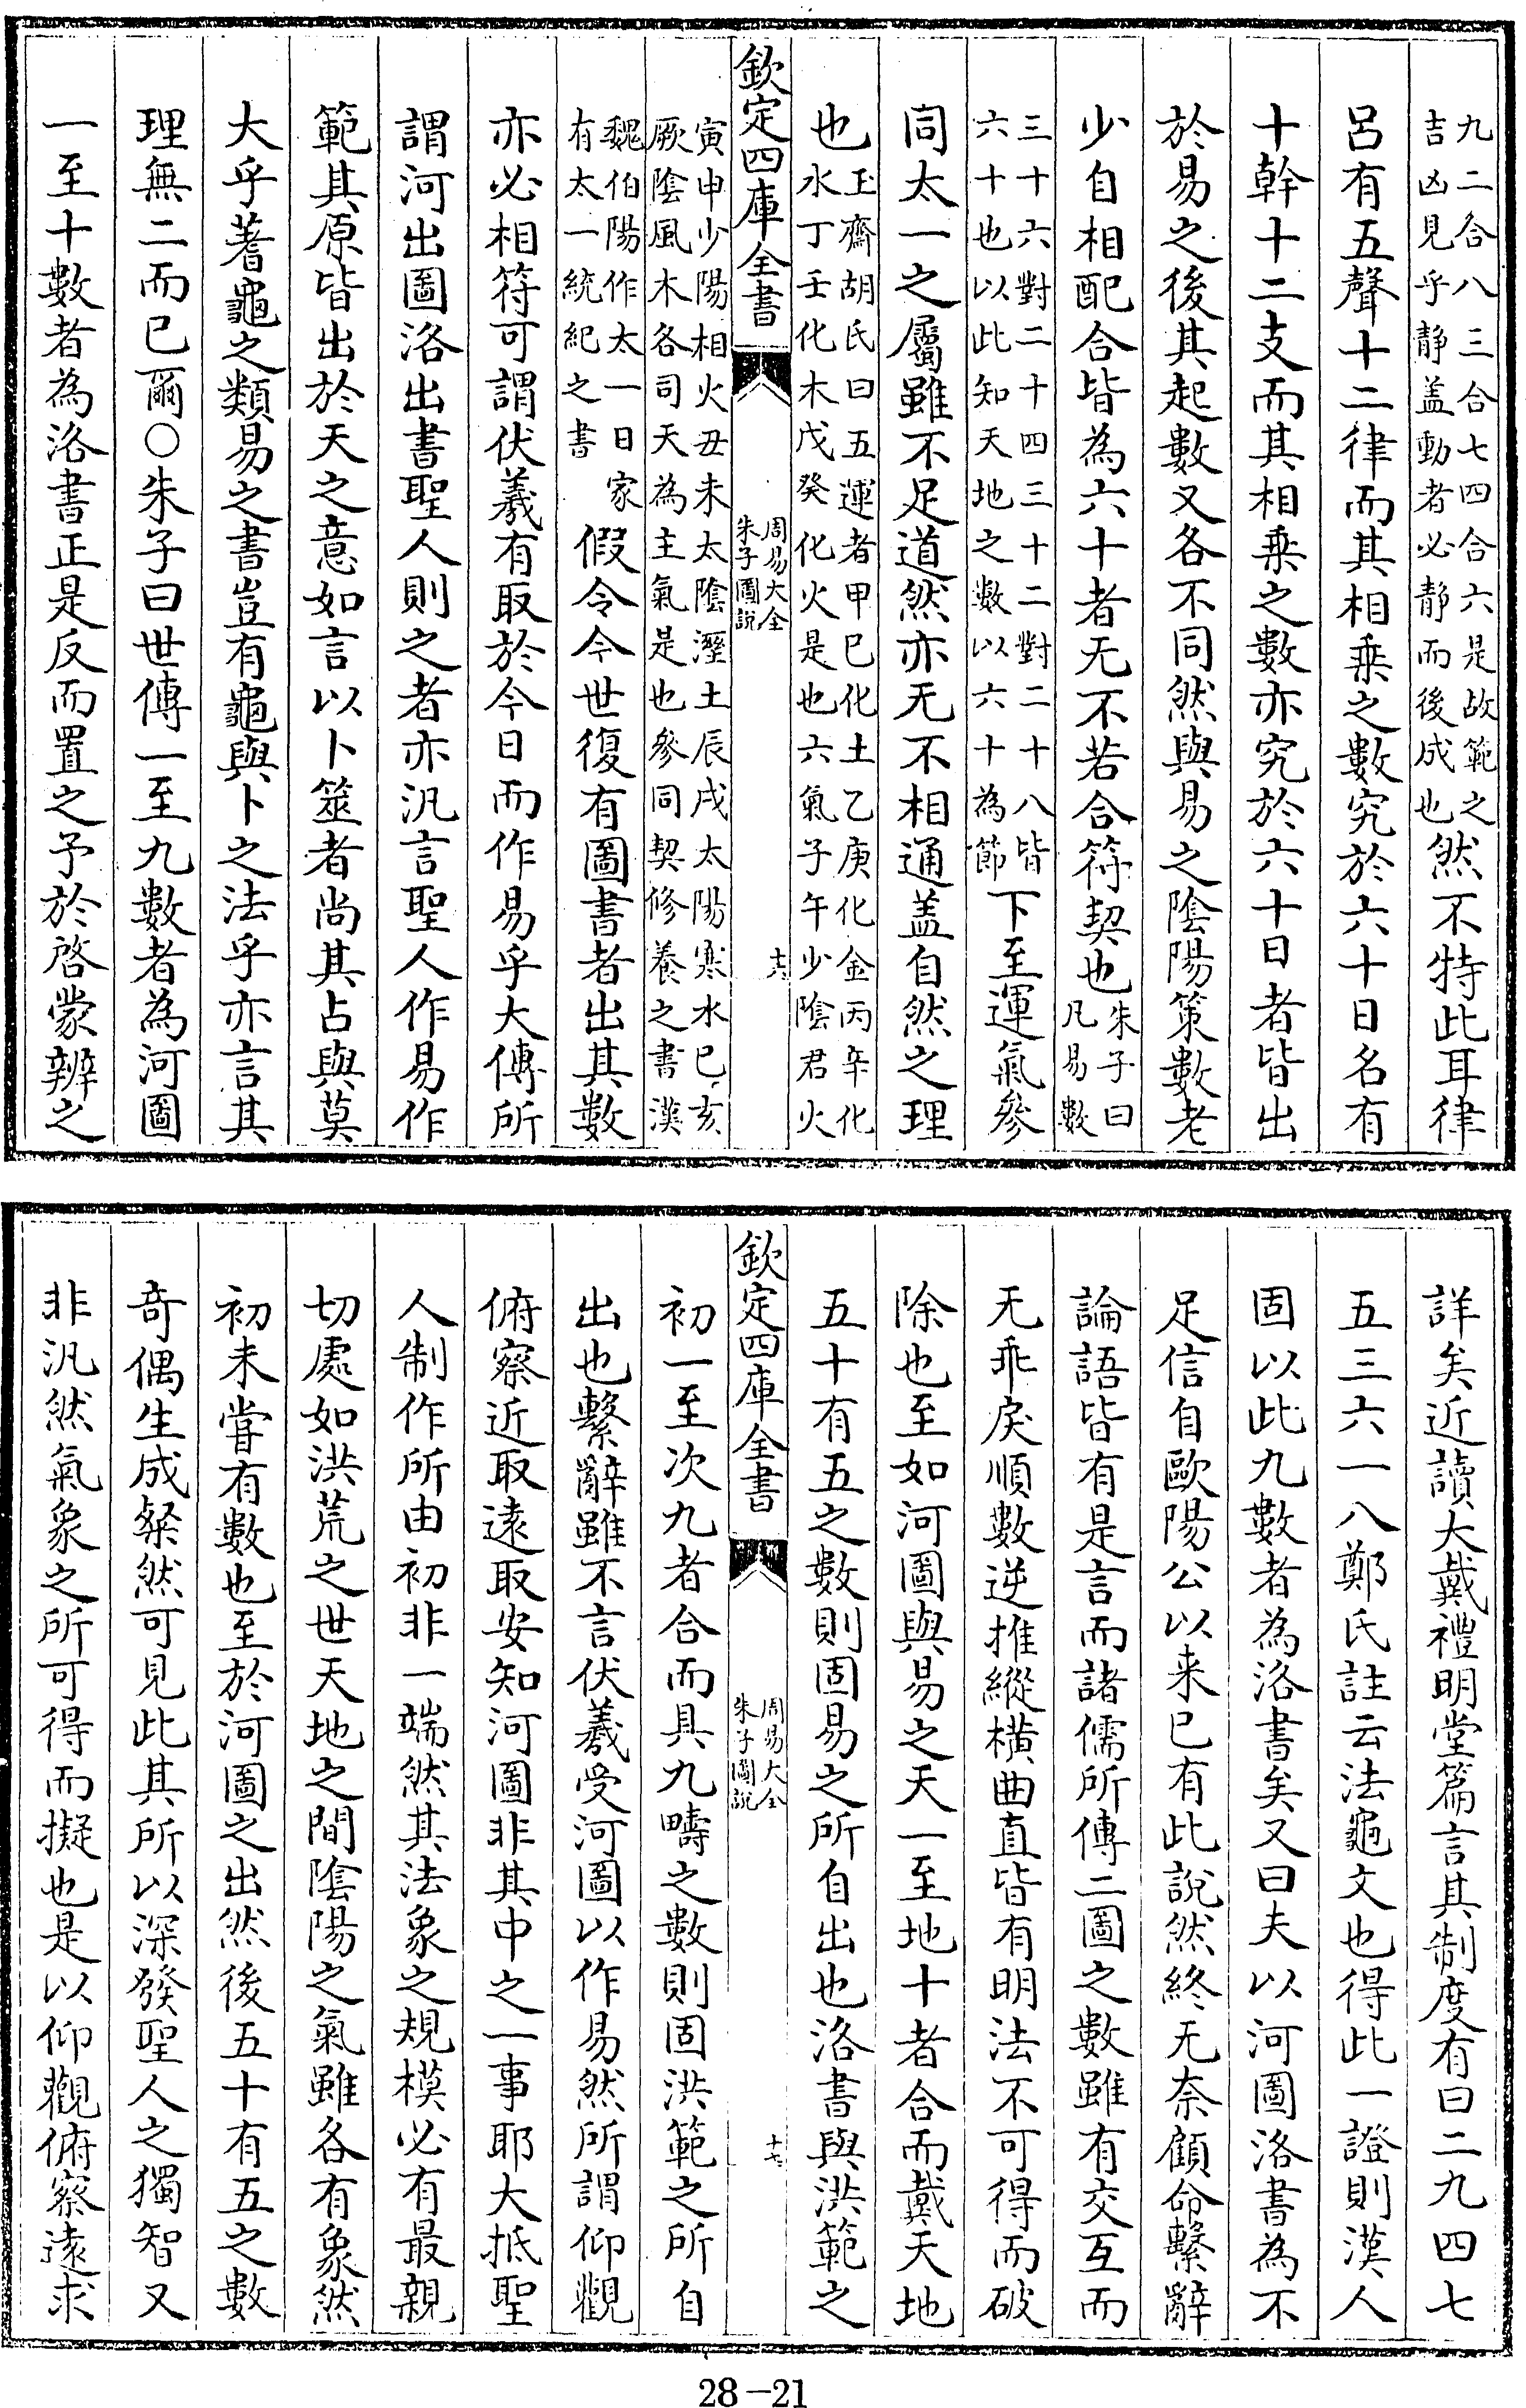 九二合八三合七四合六是故範之
吉凶見乎静盖動者必静而後成也
然不特此耳律
呂有五聲十二律而其相乗之數究於六十日名有
十幹十二支而其相乗之數亦究於六十日者皆出
於易之後其起數又各不同然與易之陰陽策數老
少自相配合皆為六十者无不若合符契也
朱子曰
凡易數
三十六對二十四三十二對二十八皆
六十也以此知天地之數以六十為節
下至運氣參
同太一之屬雖不足道然亦无不相通盖自然之理
也
玉齋胡氏曰五運者甲巳化土乙庚化金丙辛化
水丁壬化木戊癸化火是也六氣子午少隂君火
欽定四庫全書
周易大全
朱子圖說
十六
寅申少陽相火丑未太隂溼土辰戌太陽寒水巳亥
厥隂風木各司天為主氣是也參同契修養之書漢
魏伯陽作太一日家
有太一統紀之書
假令今世復有圖書者出其數
亦必相符可謂伏羲有取於今日而作易乎大傳所
謂河出圖洛出書聖人則之者亦汎言聖人作易作
範其原皆出於天之意如言以卜筮者尚其占與莫
大乎蓍龜之類易之書豈有龜與卜之法乎亦言其
理無二而已爾○朱子曰世傳一至九數者為河圖
一至十數者為洛書正是反而置之予於啓蒙辨之
詳矣近讀大戴禮明堂篇言其制度有曰二九四七
五三六一八鄭氏註云法龜文也得此一證則漢人
固以此九數者為洛書矣又曰夫以河圖洛書為不
足信自歐陽公以来已有此說然終无奈顧命繫辭
論語皆有是言而諸儒所傳二圖之數雖有交互而
无乖戾順數逆推縱横曲直皆有明法不可得而破
除也至如河圖與易之天一至地十者合而戴天地
五十有五之數則固易之所自出也洛書與洪範之
欽定四庫全書
周易大全
朱子圖說
十七
初一至次九者合而具九疇之數則固洪範之所自
出也繫辭雖不言伏羲受河圖以作易然所謂仰觀
俯察近取遠取安知河圖非其中之一事耶大抵聖
人制作所由初非一端然其法象之規模必有最親
切處如洪荒之世天地之間陰陽之氣雖各有象然
初未嘗有數也至於河圖之出然後五十有五之數
奇偶生成粲然可見此其所以深發聖人之獨智又
非汎然氣象之所可得而擬也是以仰觀俯察遠求
28-21